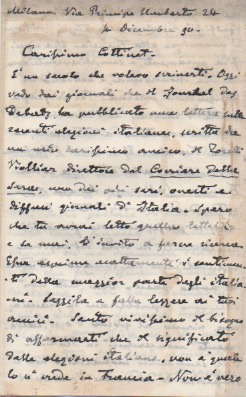 Milano Via Principe Umberto 24
4 Dicembre 90.
Carissimo Cottinet.
È un secolo che volevo scriverti. Oggi
vedo dai giornali che il Journal des
Debats, ha pubblicato una lettera sulle
recenti elezioni italiane, scritta da
un mio carissimo amico, il Torelli
Viollier direttore del Corriere della
Sera, uno dei più seri, onesti e
diffusi giornali d'Italia. Spero
che tu avrai letto questa lettera
e se mai, ti invito a farne ricerca.
Essa esprime esattamente i sentimen-
ti della maggior parte degli Italia-
ni. Leggila e falla leggere ai tuoi
amici. Sento vivissimo il bisogno
di affermarti che il significato
delle elezioni italiane, non è quale
lo si crede in Francia. Non è vero